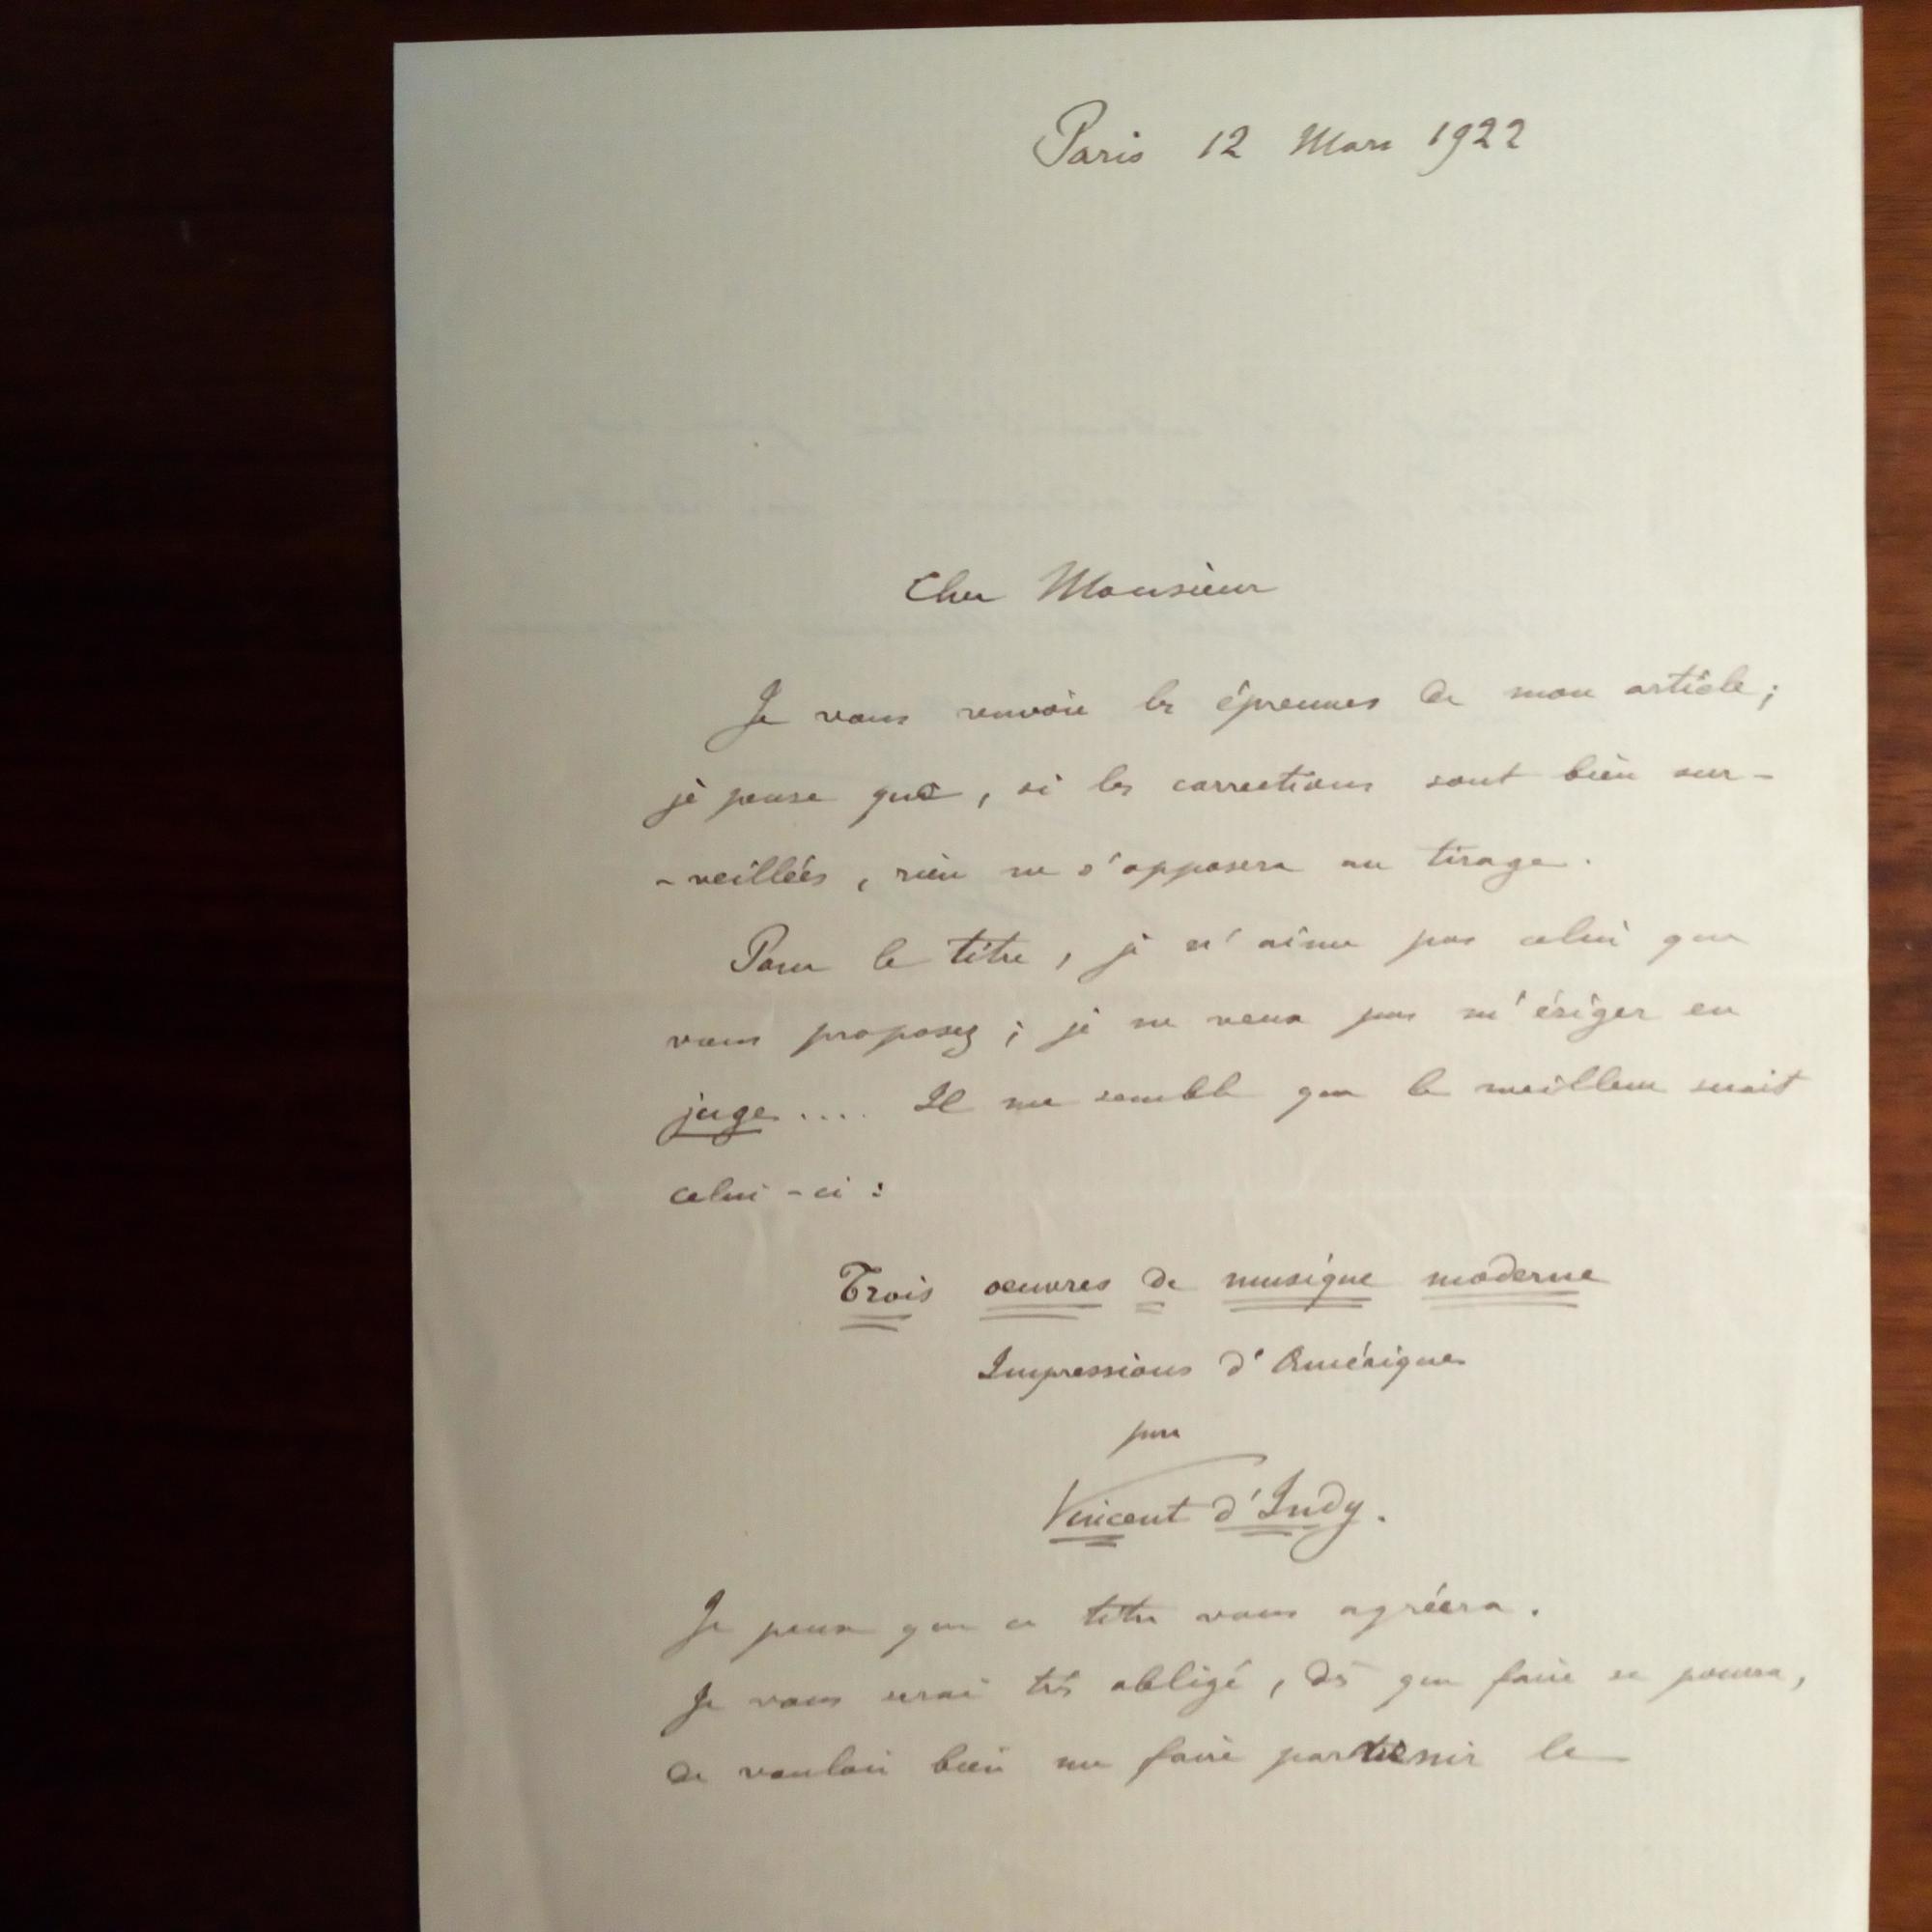 Paris 12 Mars 1922
Cher Monsieur
Je vous renvoie les épreuves de mon article;
je pense que, si les corrections sont bien sur-
-veillées, rien ne s'opposera au tirage.
Pour le titre, je n'aime pas celui que
vous proposez; je ne veux pas m'ériger en
juge.... Il me semble que le meilleur serait
celui-ci:
Trois oeuvres de musique moderne
Impressions d'Amérique
par
Vincent d'Indy.
Je pense que ce titre vous agréera.
Je vous serai très obligé, dès que faire se pourra,
de vouloir bien me faire parvenir le